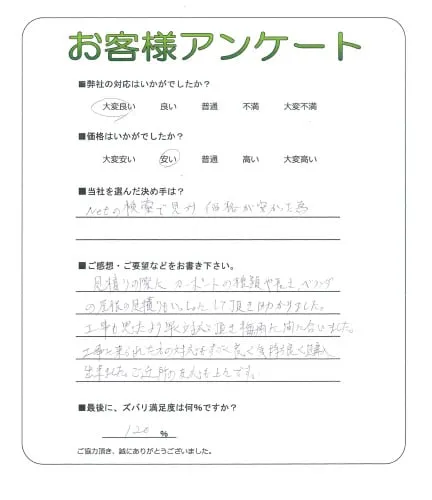 お客様アンケート
■弊社の対応はいかがでしたか？
大変良い 良い 普通 不満 大変不満
■価格はいかがでしたか？
大変安い 安い 普通 高い 大変高い
■当社を選んだ決め手は？
Netの検索で見て 価格が安かった為
■ご感想・ご要望などをお書き下さい。
見積りの際に カーポートの種類や長さ、ベランダ
の屋根の見積りもいっしょに して頂き たすかりました。
工事も思ったより早く 頂き 梅雨に間に合いました。
工事に来られた方の対応もすごく良く気持ち良く購入
出来ました。ご近所の
■最後に、ズバリ満足度は何％ですか？
120 %
ご協力頂き、誠にありがとうございました。